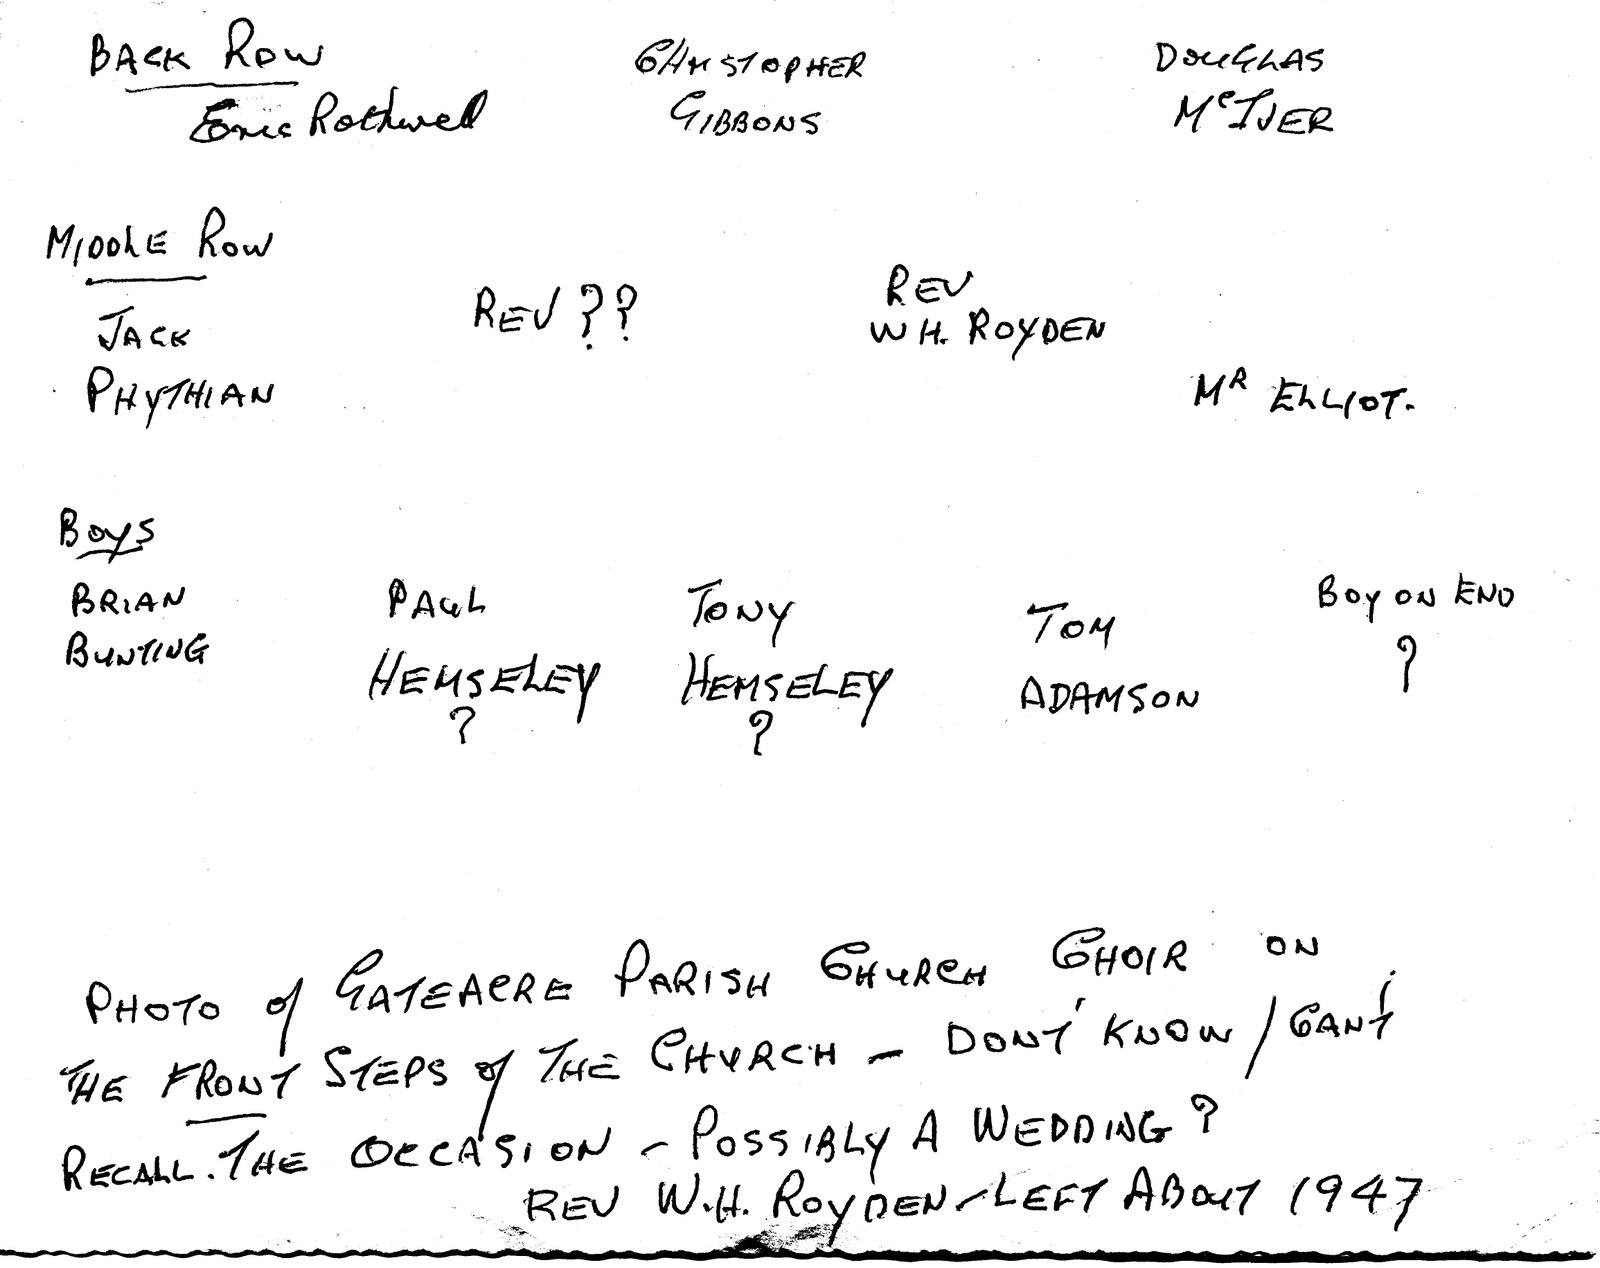 BACK ROW
Eric Rothwell
CHRISTOPHER
GIBBONS
DOUGLAS
McIVER
MIDDLE ROW
JACK
PHYTHIAN
REV ??
REV
W H. ROYDEN
MR ELLIOT.
BOYS
BRIAN
BUNTING
PAUL
HEMSELEY
?
TONY
HEMSELEY
?
TOM
ADAMSON
BOY ON END
?
PHOTO of GATEACRE PARISH CHURCH CHOIR ON
THE FRONT STEPS of THE CHURCH – DONT' KNOW / CAN'T
RECALL. THE OCCASION – POSSIBLY A WEDDING?
REV W.H. ROYDEN – LEFT ABOUT 1947